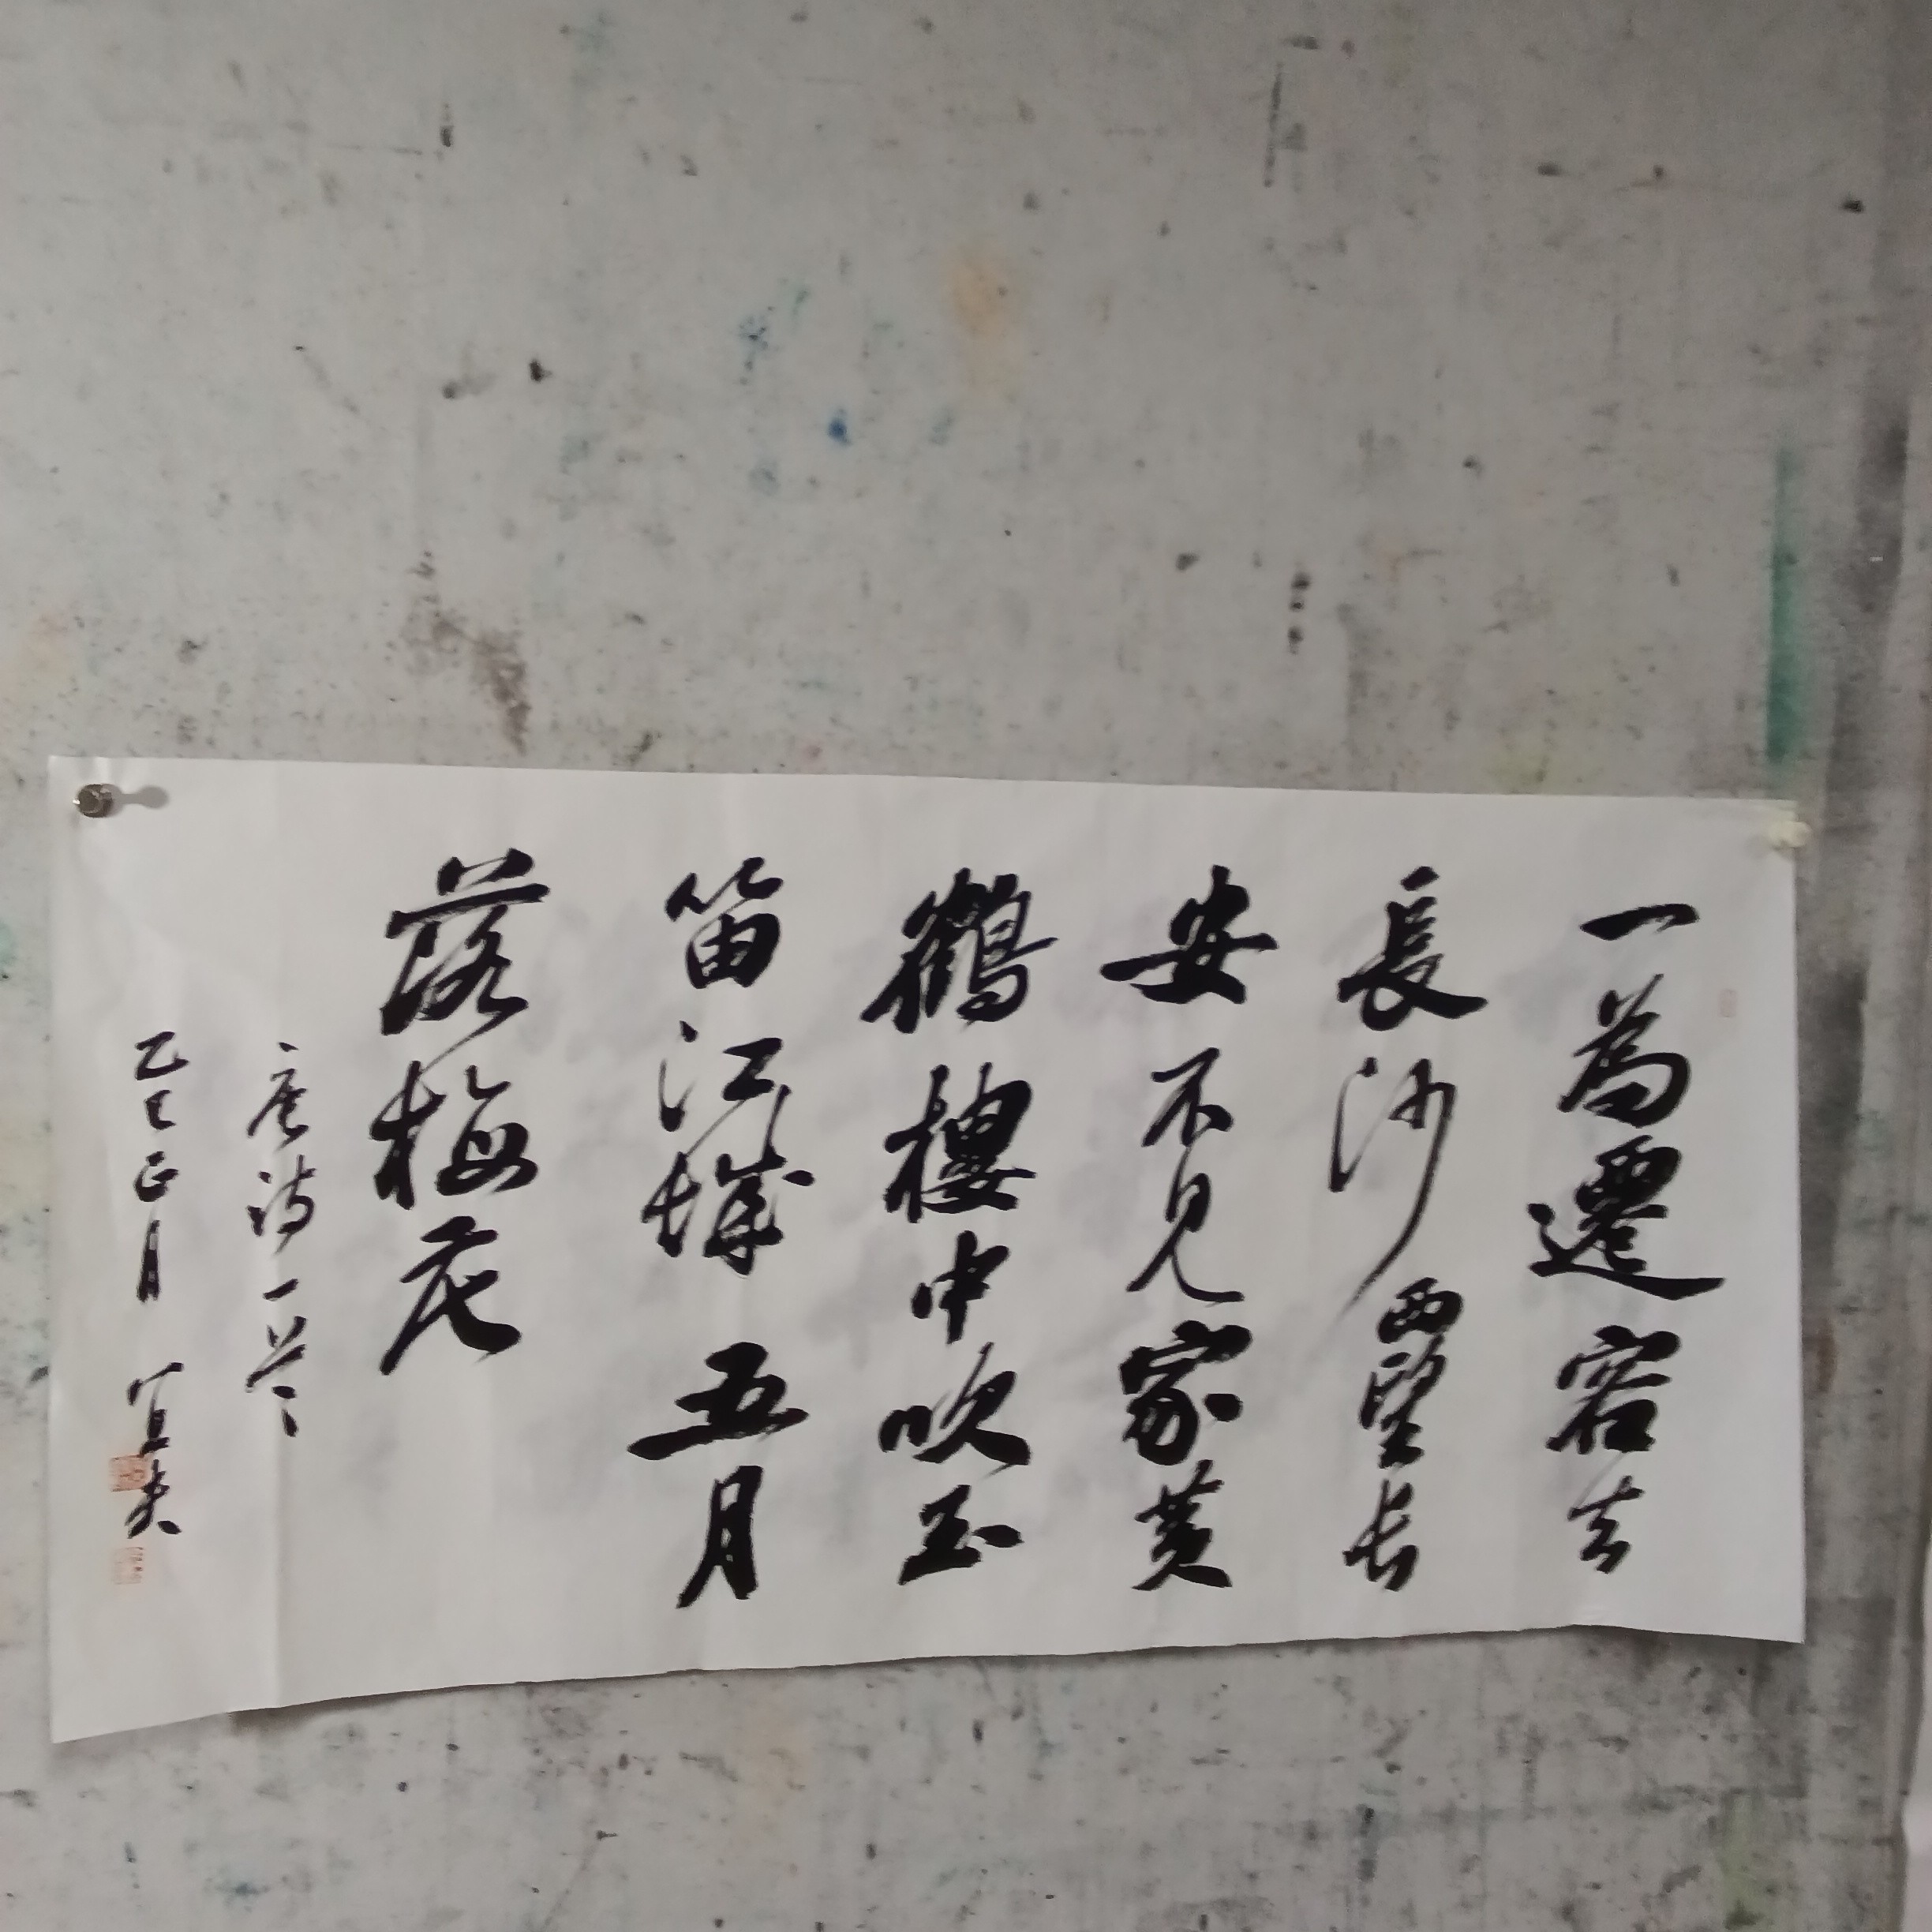 一為遷客去
長沙西望长
安不见家黄
鶴樓中吹玉
笛江城五月
落梅花
唐诗一首
乙巳正月 宜夫